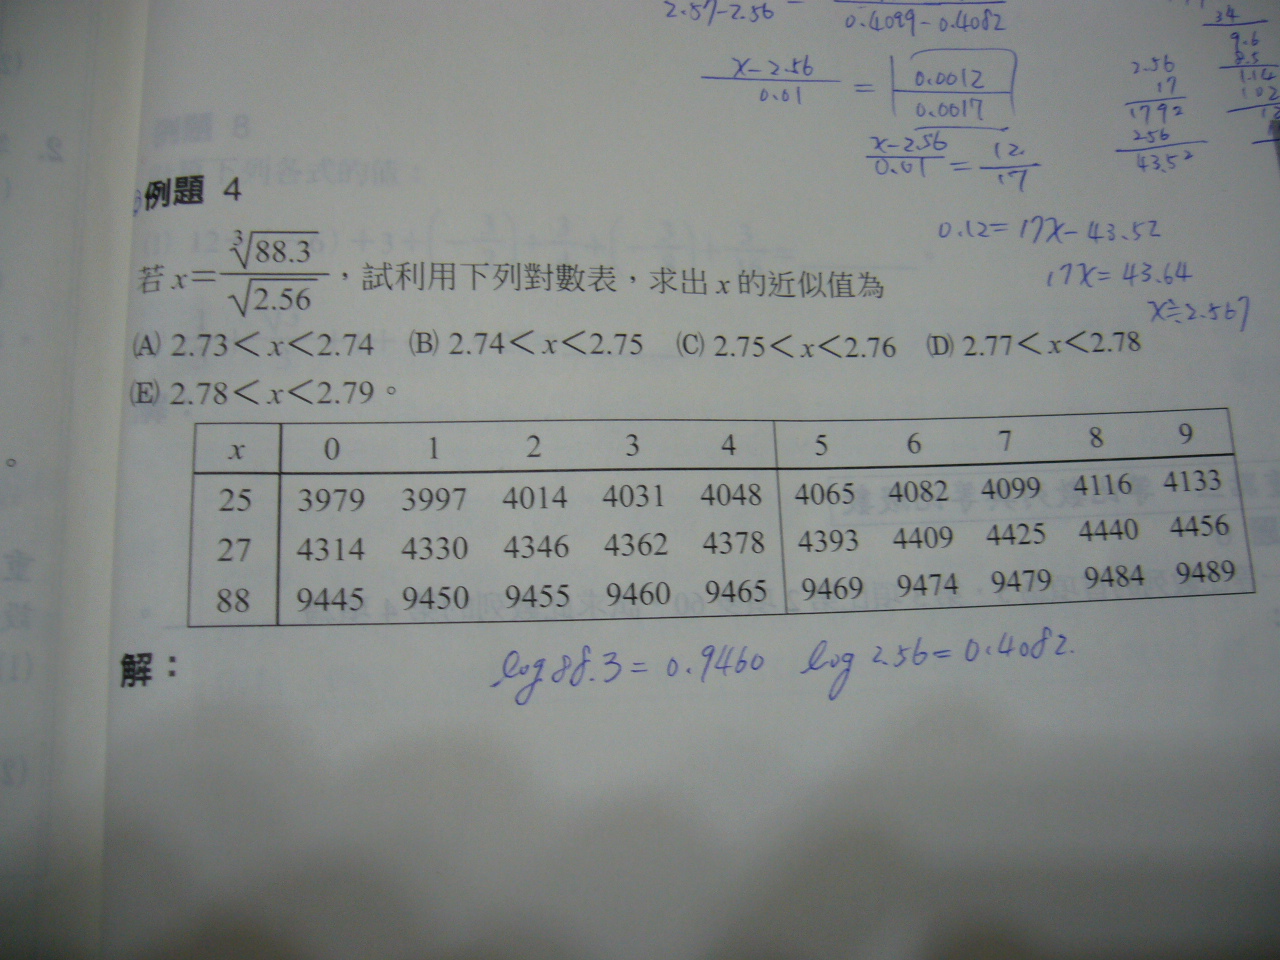 2.57-2.56
0.4099-0.4082
x-2.56 / 0.01 = 0.0012 / 0.0017
x-2.56 / 0.01 = 12 / 17
0.12=17x-43.52
17x=43.64
x≒2.567
2.56
17
1792
256
43.52
34
9.6
8.5
1.14
102
例題 4
若 x=∛88.3 / √2.56,試利用下列對數表,求出 x 的近似值為
(A) 2.73<x<2.74 (B) 2.74<x<2.75 (C) 2.75<x<2.76 (D) 2.77<x<2.78
(E) 2.78<x<2.79。
x 0 1 2 3 4 5 6 7 8 9
25 3979 3997 4014 4031 4048 4065 4082 4099 4116 4133
27 4314 4330 4346 4362 4378 4393 4409 4425 4440 4456
88 9445 9450 9455 9460 9465 9469 9474 9479 9484 9489
解:
log88.3=0.9460 log2.56=0.4082.